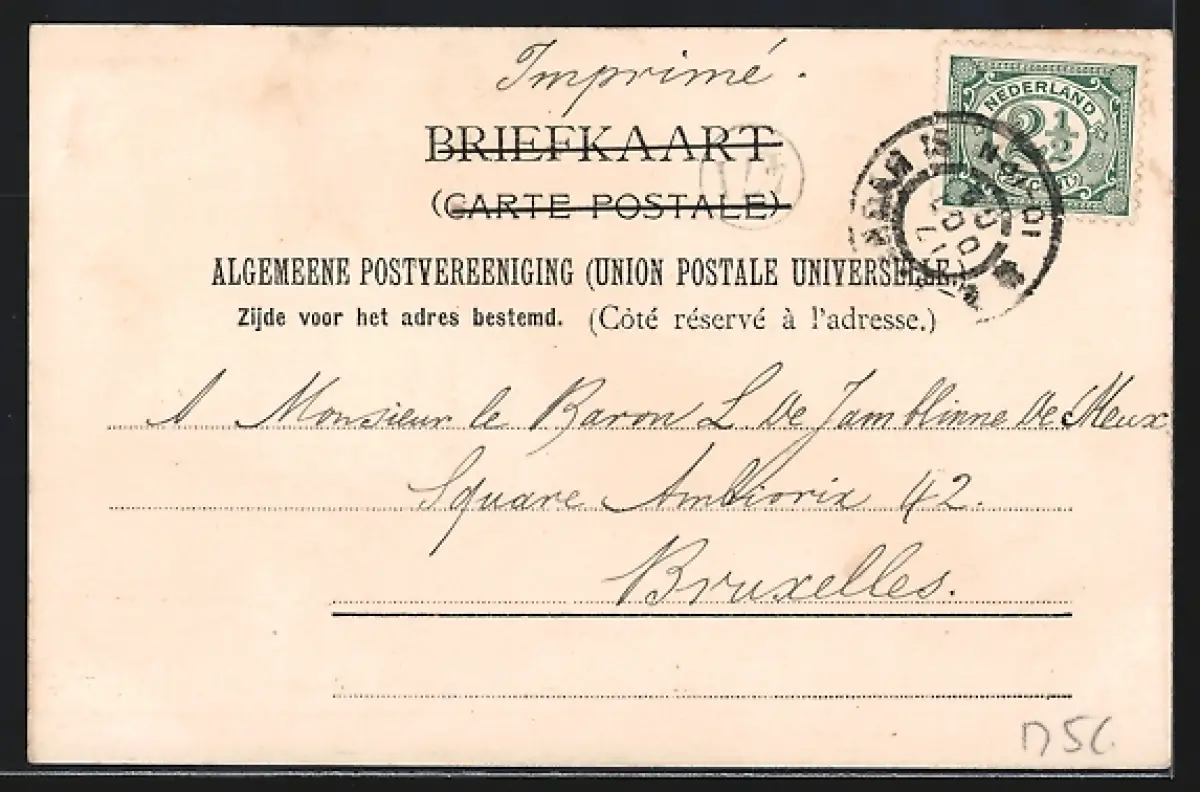 Imprimé.
BRIEFKAART
(CARTE POSTALE)
NEDERLAND
2½
ALGEMEENE POSTVEREENIGING (UNION POSTALE UNIVERSELLE.)
Zijde voor het adres bestemd. (Côté réservé à l'adresse.)
A Monsieur le Baron L De Jamblinne De Meux
Square Ambiorix 42.
Bruxelles.